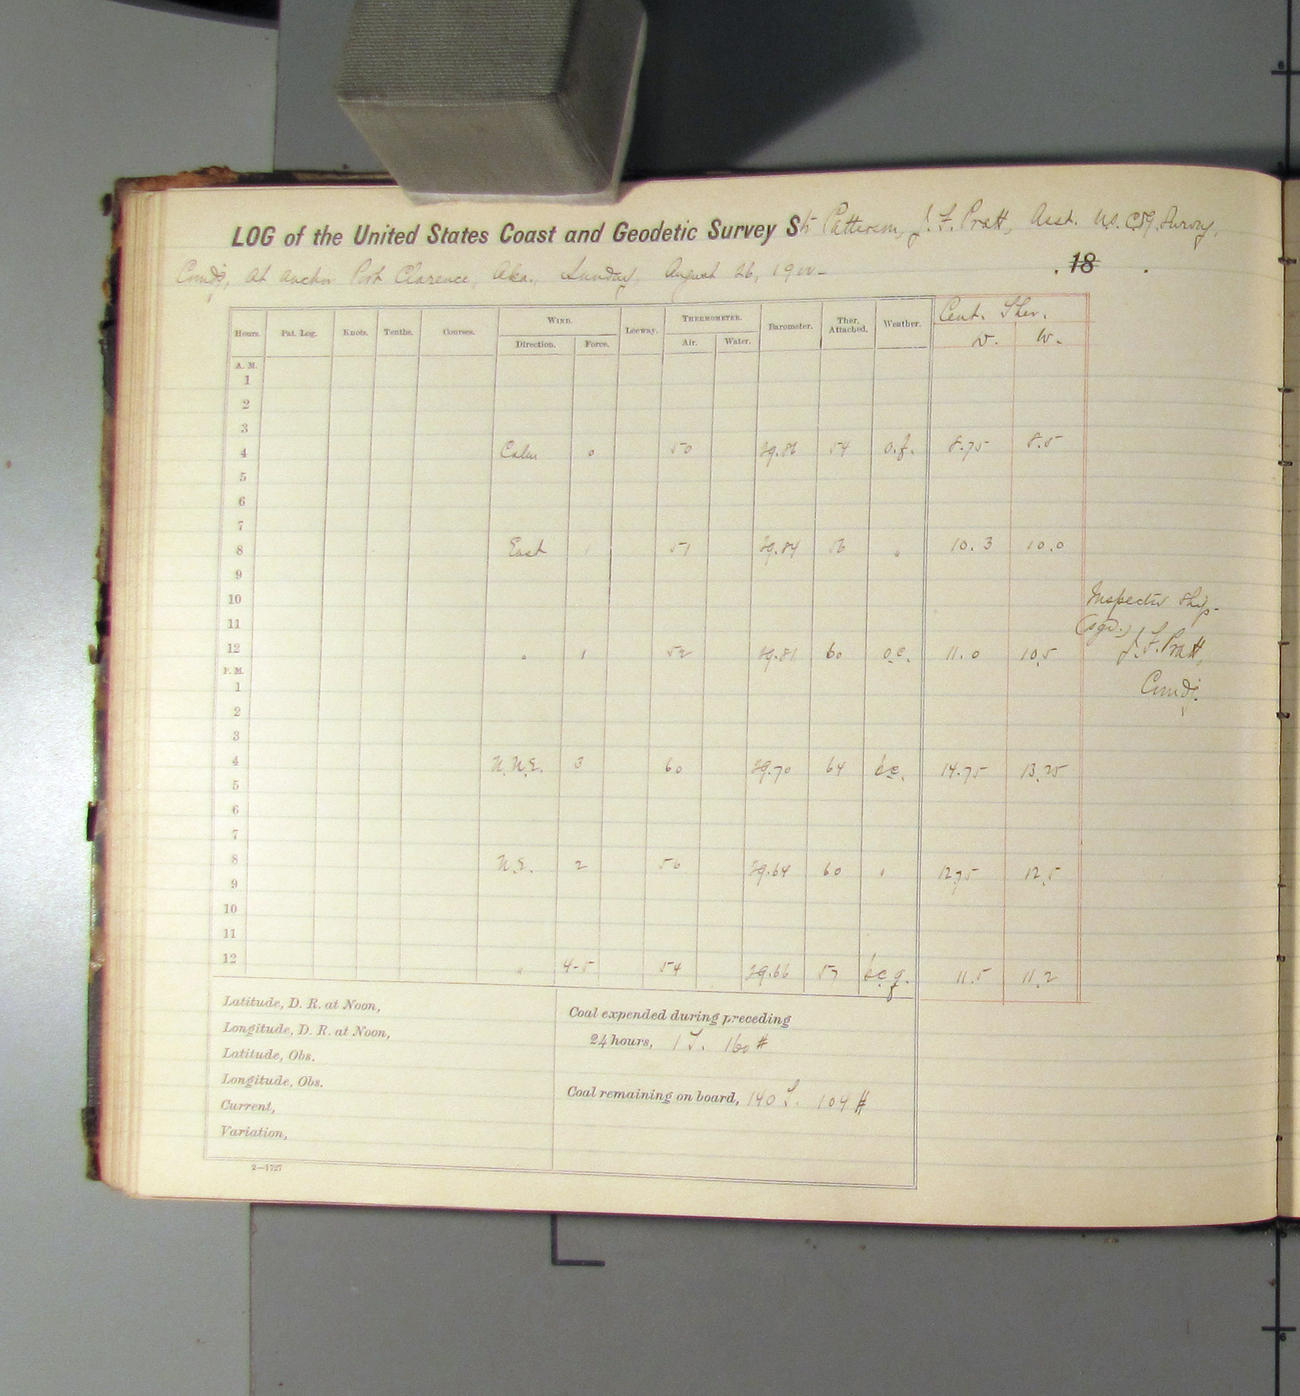 LOG of the United States Coast and Geodetic Survey Str Patterson, J. F. Pratt, Asst. U.S. C & G. Survey,
Comd'g, at anchor Port Clarence, Aka., Sunday, August 26, 1900-
18
Hours. Pat. Log. Knots. Tenths. Courses. WIND. Leeway. THERMOMETER. Barometer. Ther. Attached. Weather. Cent. Ther.
Direction. Force. Air. Water. D. W.
A. M.
1
2
3
4 Calm 0 50 29.86 54 o.f. 8.75 8.5
5
6
7
8 East 1 51 29.84 56 " 10.3 10.0
9
10
11
12 " 1 52 29.81 60 o.c. 11.0 10.5
P. M.
1
2
3
4 N.N.E. 3 60 29.70 64 bc. 14.75 13.25
5
6
7
8 N.E. 2 56 29.64 60 " 12.75 12.5
9
10
11
12 " 4-5 54 29.66 57 bc.q. 11.5 11.2
Inspected Ship-
(sgd.) J. F. Pratt,
Comd'g.
Latitude, D. R. at Noon,
Longitude, D. R. at Noon,
Latitude, Obs.
Longitude, Obs.
Current,
Variation,
Coal expended during preceding
24 hours, 1 T. 160 #
Coal remaining on board, 140 T. 104 #
2—1727